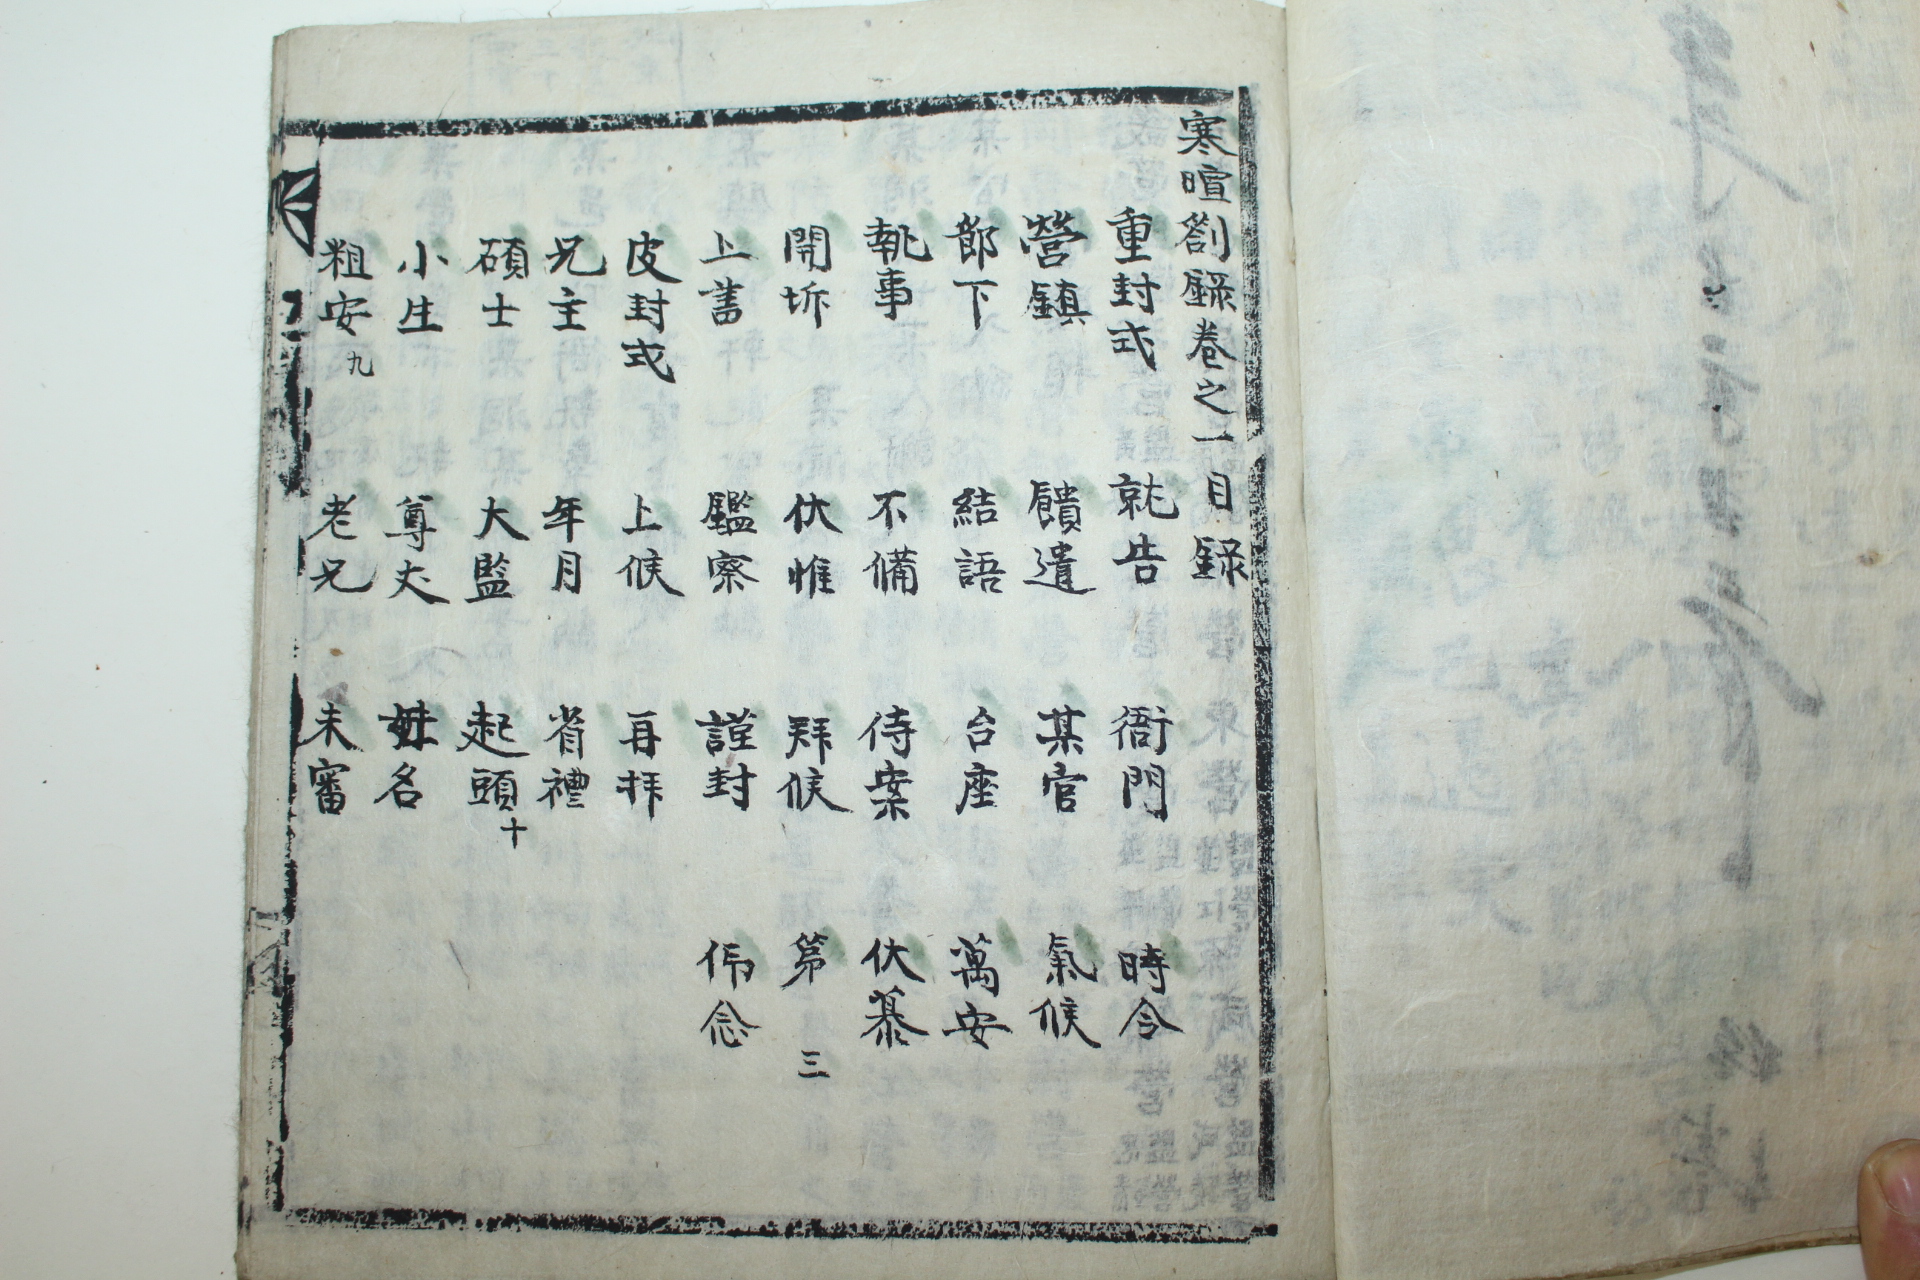 寒暄劄錄卷之一目錄
重封式 就告 衙門 時令
營鎮 饋遺 某官 氣候
節下 結語 台座 萬安
執事 不備 侍案 伏慕
開坼 伏惟 拜候 第 三
上書 鑑察 謹封 伻念
皮封式 上候 再拜
兄主 年月 省禮
碩士 大監 起頭 十
小生 尊丈 姓名
粗安 九 老兄 未審